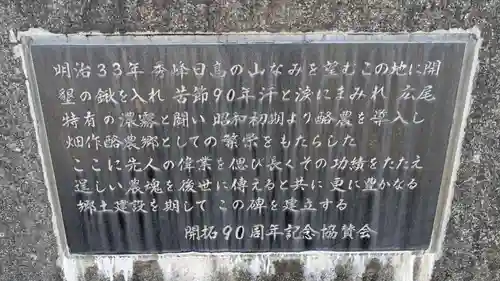 明治33年 秀峰日高の山なみを望むこの地に開
墾の鍬を入れ 苦節90年汗と涙にまみれ 広尾
特有の濃霧と闘い 昭和初期より酪農を導入し
畑作酪農郷としての繁栄をもたらした
ここに先人の偉業を偲び長くその功績をたたえ
逞しい農魂を後世に傳えると共に 更に豊かなる
郷土建設を期して この碑を建立する
開拓90周年記念協賛会